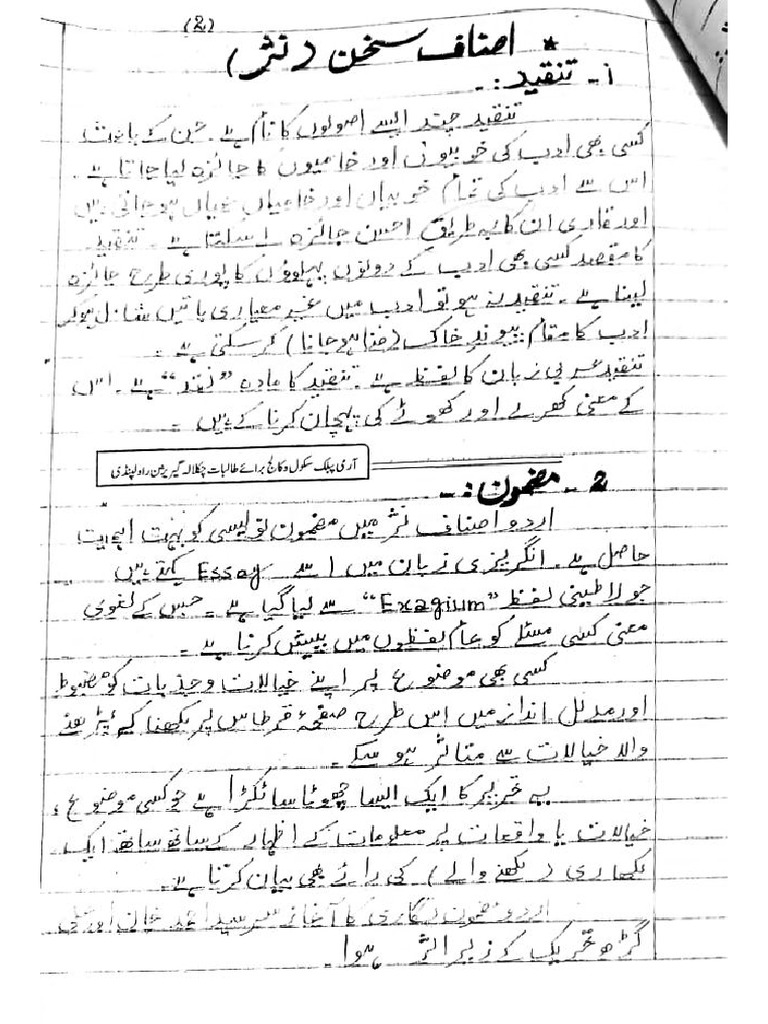 (2)
* اصناف سخن (نثر)
1- تنقید:-
تنقید چند ایسے اصولوں کا نام ہے۔ جن کے باعث
کسی بھی ادب کی خوبیوں اور خامیوں کا جائزہ لیا جاتا ہے۔
اس سے ادب کی تمام خوبیاں اور خامیاں عیاں ہو جاتی ہیں
اور قاری ان کا بہ طریق احسن جائزہ لے سکتا ہے۔ تنقید
کا مقصد کسی بھی ادب کے دونوں پہلوؤں کا پوری طرح جائزہ
لینا ہے۔ تنقید نہ ہو تو ادب میں غیر معیاری باتیں شامل ہو کر
ادب کا مقام پیوندِ خاک (فنا ہو جانا) کر سکتی ہے۔
تنقید عربی زبان کا لفظ ہے۔ تنقید کا مادہ "نقد" ہے۔ اس
کے معنی کھرے اور کھوٹے کی پہچان کرنا کے ہیں۔
آرمی پبلک سکول و کالج برائے طالبات چکلالہ گیریژن راولپنڈی
2- مضمون:-
اردو اصناف نثر میں مضمون نویسی کو بہت اہمیت
حاصل ہے۔ انگریزی زبان میں اسے Essay کہتے ہیں
جو لاطینی لفظ "Exagium" سے لیا گیا ہے۔ جس کے لغوی
معنی کسی مسئلے کو عام لفظوں میں پیش کرنا ہے۔
کسی بھی موضوع پر اپنے خیالات و جذبات کو مضبوط
اور مدلل انداز میں اس طرح صفحۂ قرطاس پر لکھنا کہ پڑھنے
والا خیالات سے متاثر ہو سکے۔
یہ تحریر کا ایک ایسا چھوٹا سا ٹکڑا ہے جو کسی موضوع،
خیالات یا واقعات پر معلومات کے اظہار کے ساتھ ساتھ ایک
لکھاری (لکھنے والے) کی رائے بھی بیان کرتا ہے۔
اردو مضمون نگاری کا آغاز سر سید احمد خان اور علی
گڑھ تحریک کے زیر اثر ہوا۔